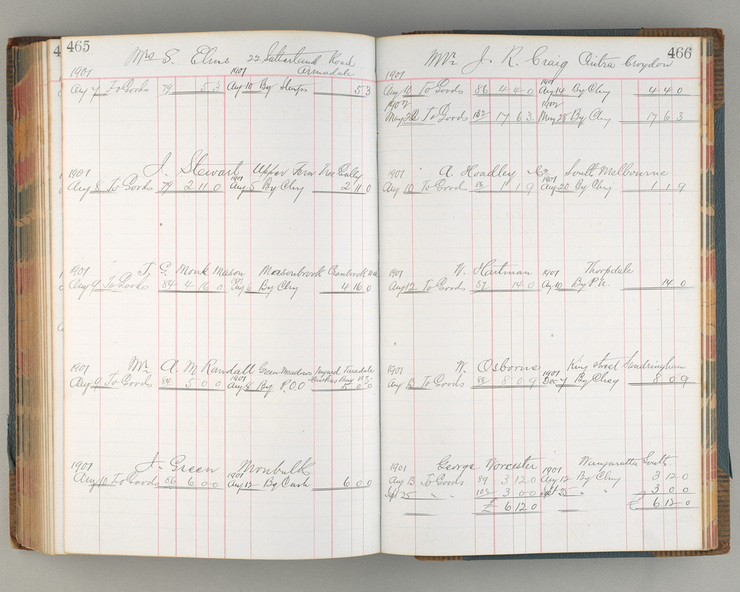 465
Mrs S. Elms 22 Sutherland Road
Armadale
1901 1901
Aug 7 To Goods 79 5 3 Aug 10 By Stamps 5 3
J. Stewart Upper Ferntree Gully
1901
Aug 8 To Goods 79 2 11 0 Aug 5 By Chq 2 11 0
J. G. Monk Mason Masonbrook Cranbrook W.A
1901 1901
Aug 9 To Goods 84 4 16 0 Aug 6 By Chq 4 16 0
Mr A. M. Randall Green Meadows
1901 1901
Aug 9 To Goods 84 5 0 0 Aug 8 By P.O.O 5 0 0
J. Green Monbulk
1901 1901
Aug 10 To Goods 86 6 0 0 Aug 12 By Cash 6 0 0
466
Mr J. R. Craig Cintra Croydon
1901 1901
Aug 10 To Goods 86 4 4 0 Aug 14 By Chq 4 4 0
1902 1902
May To Goods 182 17 6 3 May 28 By Chq 17 6 3
A. Hoadley & Co South Melbourne
1901 1901
Aug 10 To Goods 1 1 9 Aug 20 By Chq 1 1 9
W. Hartman Thorpdale
1901 1901
Aug 12 To Goods 87 14 0 Aug 10 By P.N. 14 0
W. Osborne King Street Sandringham
1901 1901
Aug To Goods 8 0 9 Dec 7 By Cheq 8 0 9
George Worcester Wangaratta South
1901 1901
Aug 13 To Goods 89 3 12 0 Aug 12 By Chq 3 12 0
Sept 25 " " 3 0 0 Sept 25 " 3 0 0
£ 6 12 0 £ 6 12 0